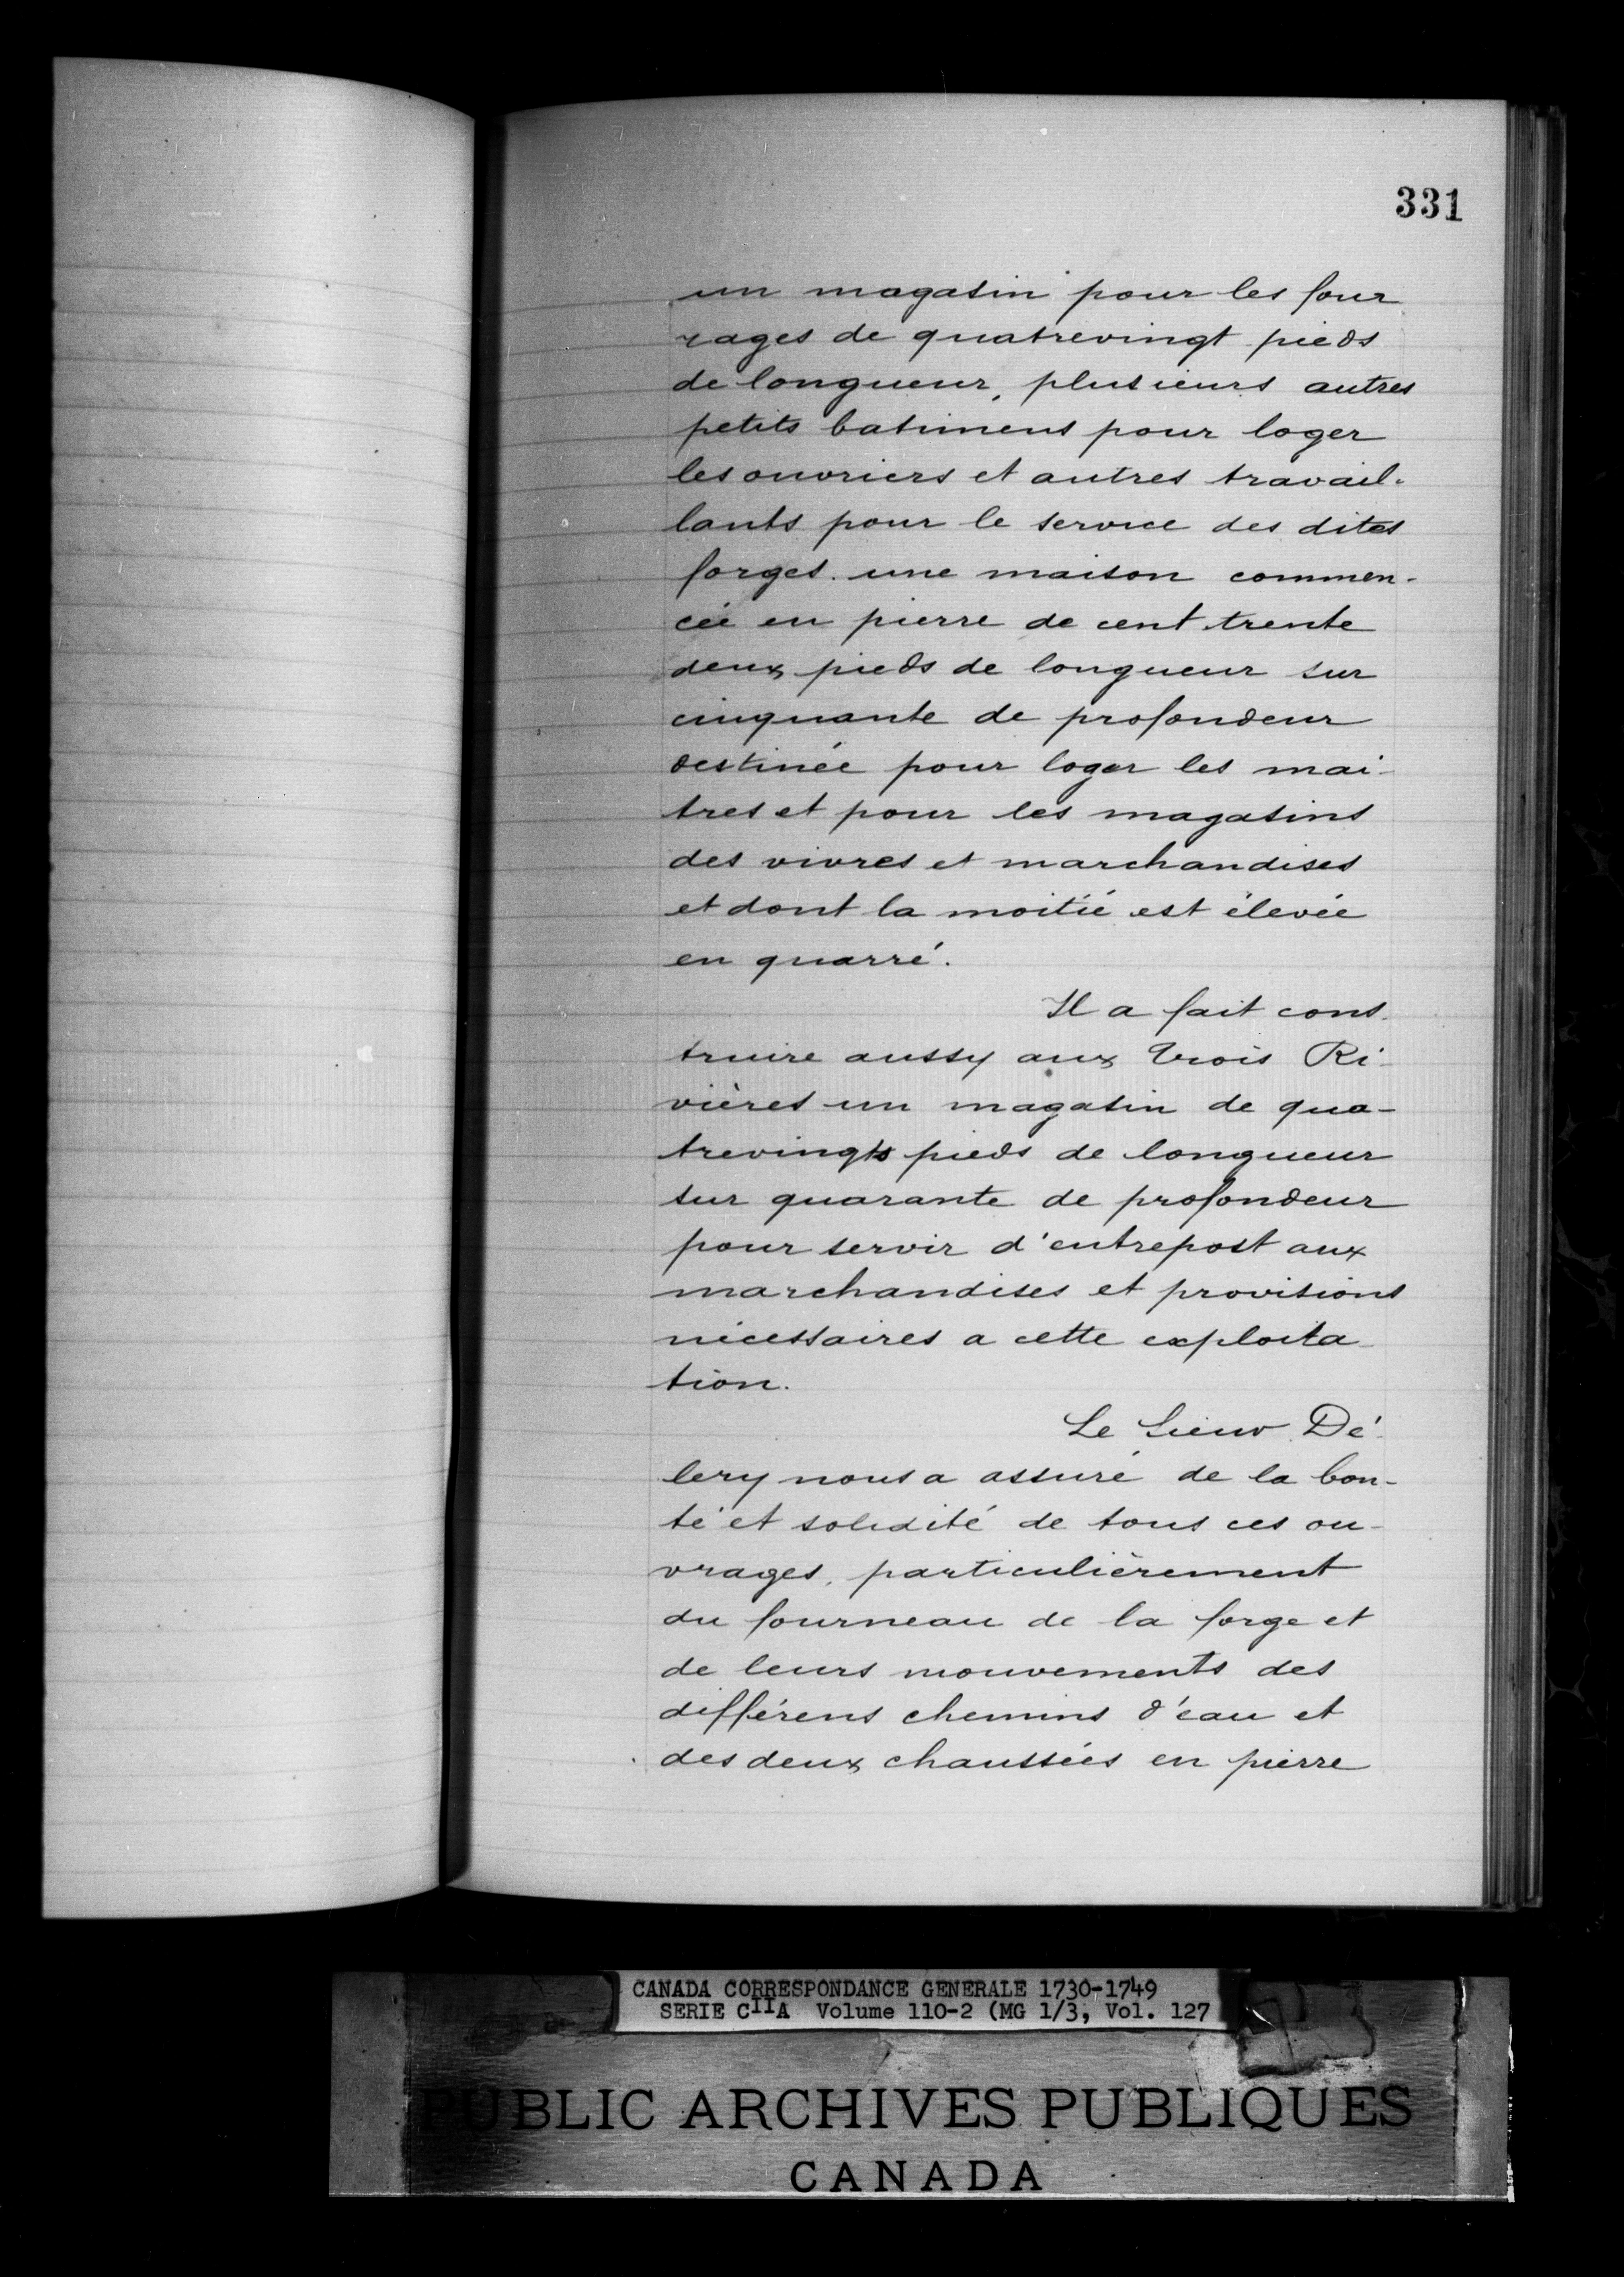 331
un magasin pour les four
rages de quatrevingt pieds
de longueur, plusieurs autres
petits batimens pour loger
les ouvriers et autres travail-
lants pour le service des dites
forges. une maison commen-
cée en pierre de cent trente
deux pieds de longueur sur
cinquante de profondeur
destinée pour loger les mai-
tres et pour les magasins
des vivres et marchandises
et dont la moitié est élevée
en quarré.
Il a fait cons-
truire aussy aux Trois Ri-
vières un magasin de qua-
trevingts pieds de longueur
sur quarante de profondeur
pour servir d'entrepost aux
marchandises et provisions
nécessaires a cette exploita-
tion.
Le Sieur Dé-
lery nous a assuré de la bon-
té et solidité de tous ces ou-
vrages, particulièrement
du fourneau de la forge et
de leurs mouvements des
différens chemins d'eau et
des deux chaussées en pierre
CANADA CORRESPONDANCE GENERALE 1730-1749
SERIE CIIA Volume 110-2 (MG 1/3, Vol. 127
PUBLIC ARCHIVES PUBLIQUES
CANADA